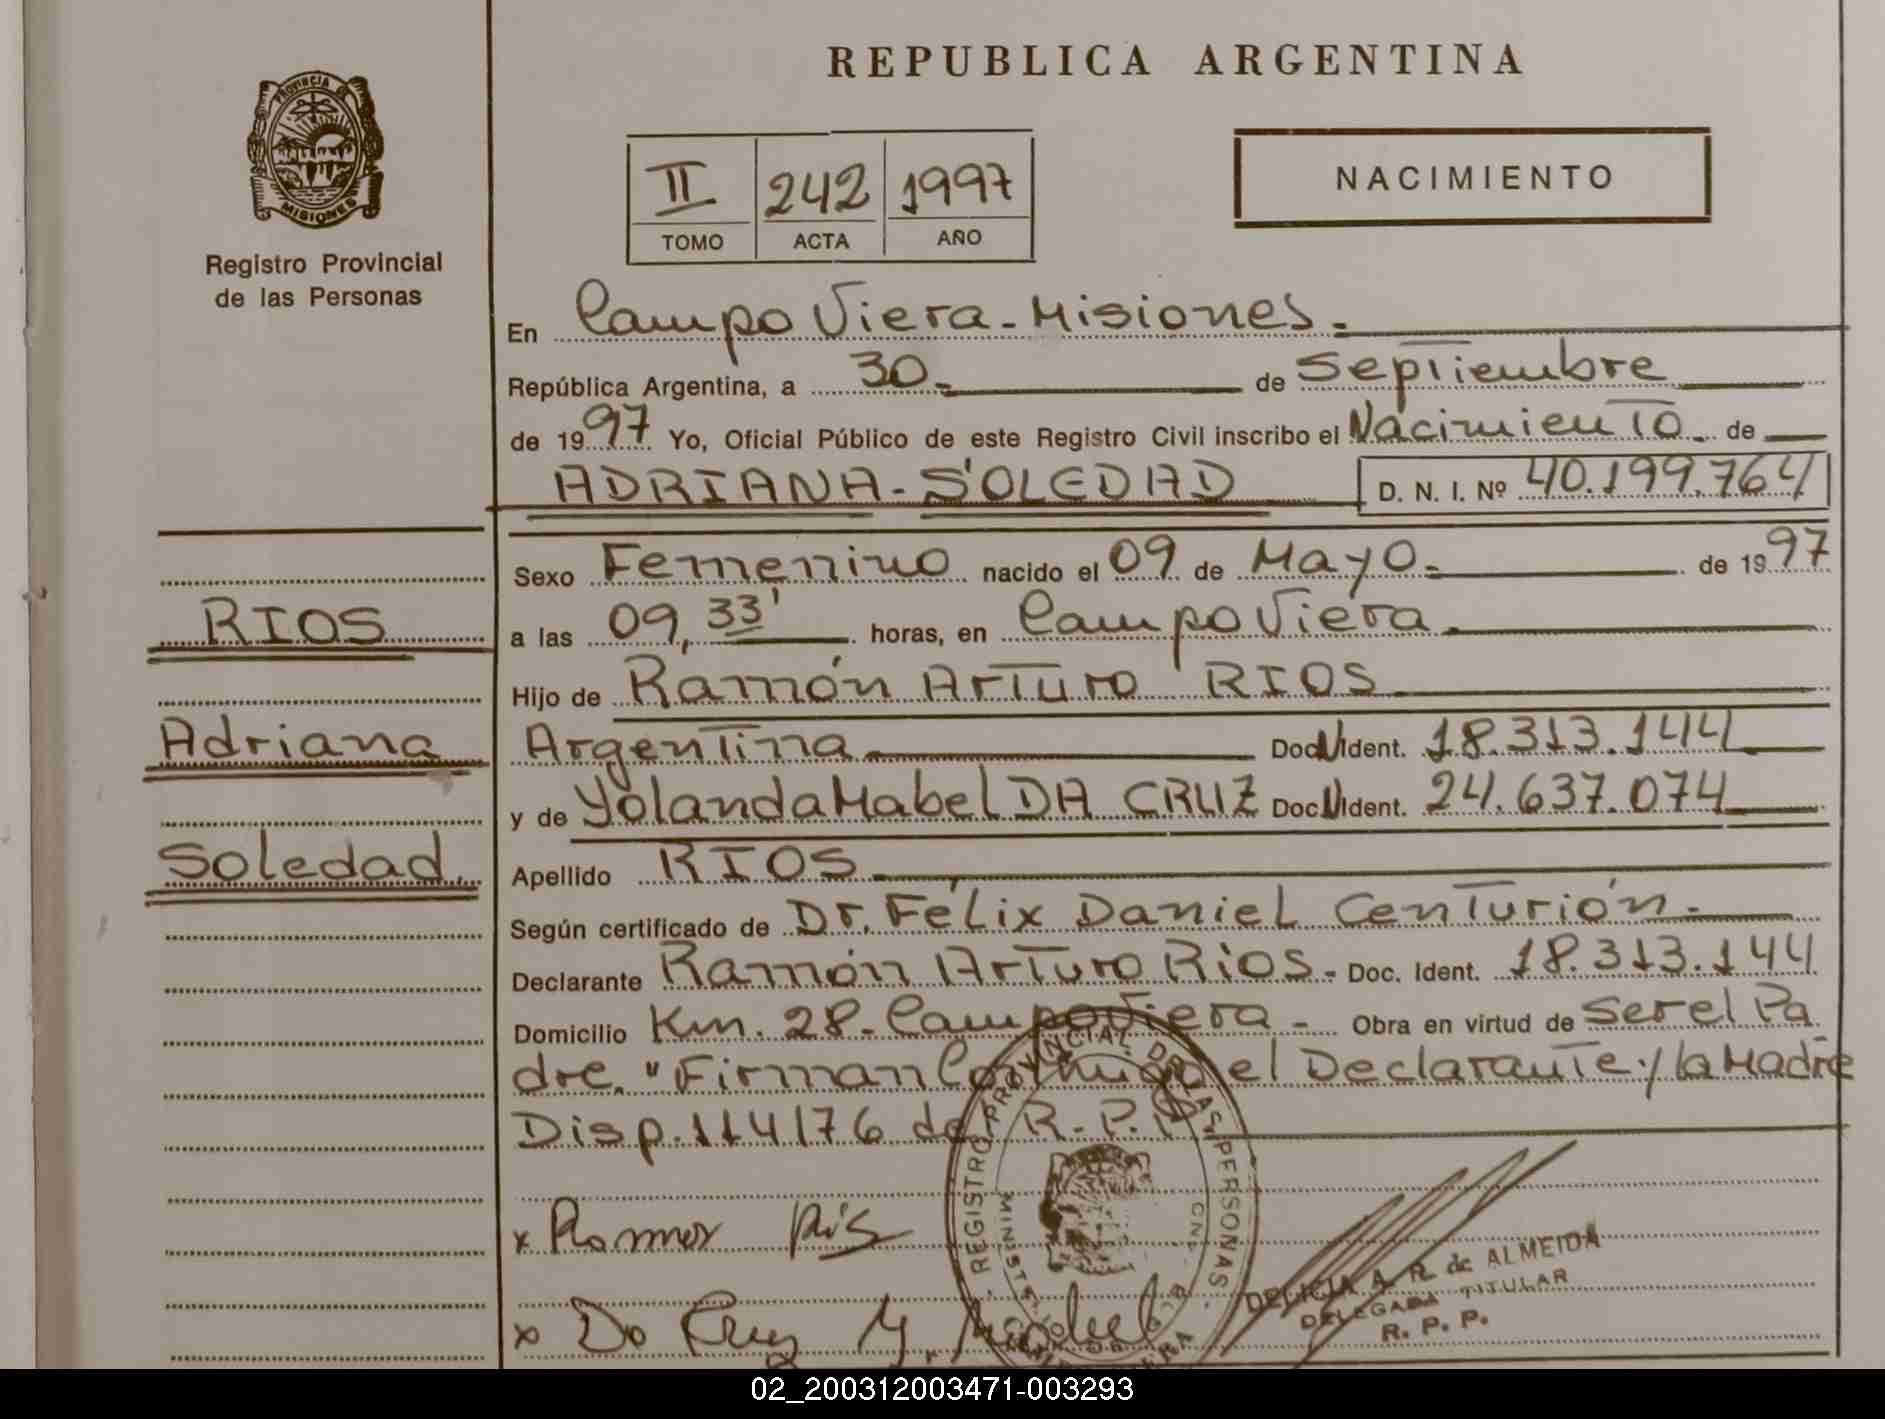 REPUBLICA ARGENTINA
PROVINCIA DE
MISIONES
Registro Provincial
de las Personas
II 242 1997
TOMO ACTA AÑO
NACIMIENTO
En Campo Viera - Misiones.
República Argentina, a 30 de Septiembre
de 1997 Yo, Oficial Público de este Registro Civil inscribo el Nacimiento de
ADRIANA - SOLEDAD D. N. I. Nº 40.199.764
Sexo Femenino nacido el 09 de Mayo de 1997
RIOS
a las 09,33' horas, en Campo Viera
Hijo de Ramón Arturo RIOS
Adriana
Argentina Doc N Ident. 18.313.144
y de Yolanda Mabel DA CRUZ Doc N Ident. 24.637.074
Soledad
Apellido RIOS
Según certificado de Dr. Félix Daniel Centurión
Declarante Ramón Arturo Rios - Doc. Ident. 18.313.144
Domicilio Km. 28 - Campo Viera - Obra en virtud de Ser el Pa
dre. "Firman Conmigo el Declarante y la Madre
Disp. 114/76 de R.P.P.
REGISTRO PROVINCIAL DE LAS PERSONAS
x Ramon Rios
x Da Cruz Y. Mabel
DELICIA A. R. de ALMEIDA
DELEGADA TITULAR
R. P. P.
02_200312003471-003293